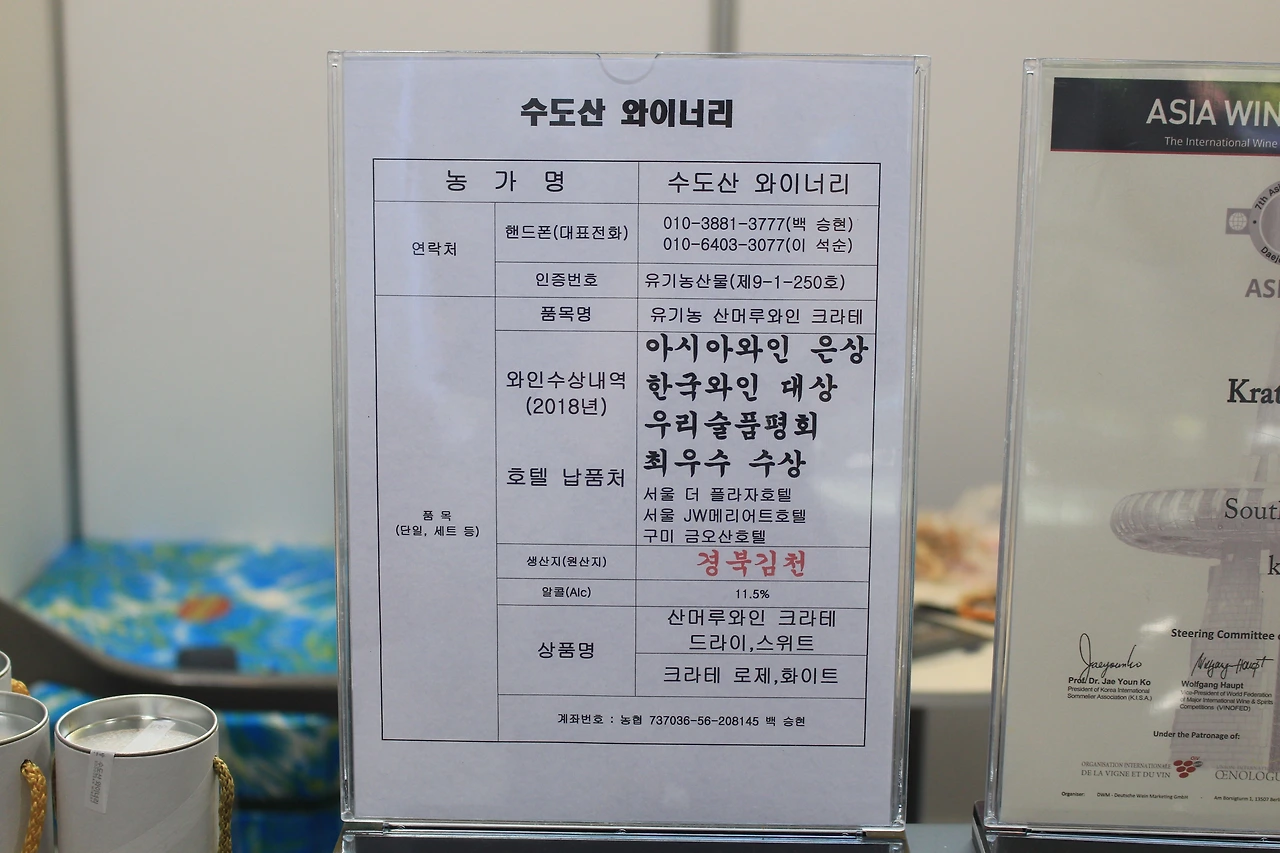 수도산 와이너리
농 가 명
수도산 와이너리
연락처
핸드폰(대표전화)
010-3881-3777(백 승현)
010-6403-3077(이 석순)
인증번호
유기농산물(제9-1-250호)
품 목
(단일, 세트 등)
품목명
유기농 산머루와인 크라테
와인수상내역
(2018년)
호텔 납품처
아시아와인 은상
한국와인 대상
우리술품평회
최우수 수상
서울 더 플라자호텔
서울 JW메리어트호텔
구미 금오산호텔
생산지(원산지)
경북김천
알콜(Alc)
11.5%
상품명
산머루와인 크라테
드라이,스위트
크라테 로제,화이트
계좌번호 : 농협 737036-56-208145 백 승현
ASIA WIN
The International Wine
7th Asi
Daej
ASI
Krat
South
k
Steering Committee
Prof. Dr. Jae Youn Ko
President of Korea International
Sommelier Association (K.I.S.A.)
Wolfgang Haupt
Vice-President of World Federation
of Major International Wine & Spirits
Competitions (VINOFED)
Under the Patronage of:
ORGANISATION INTERNATIONALE
DE LA VIGNE ET DU VIN
OIV
ŒNOLOGU
Organizer: DWM - Deutsche Wein Marketing GmbH
Am Borsigturm 1, 13507 Berl